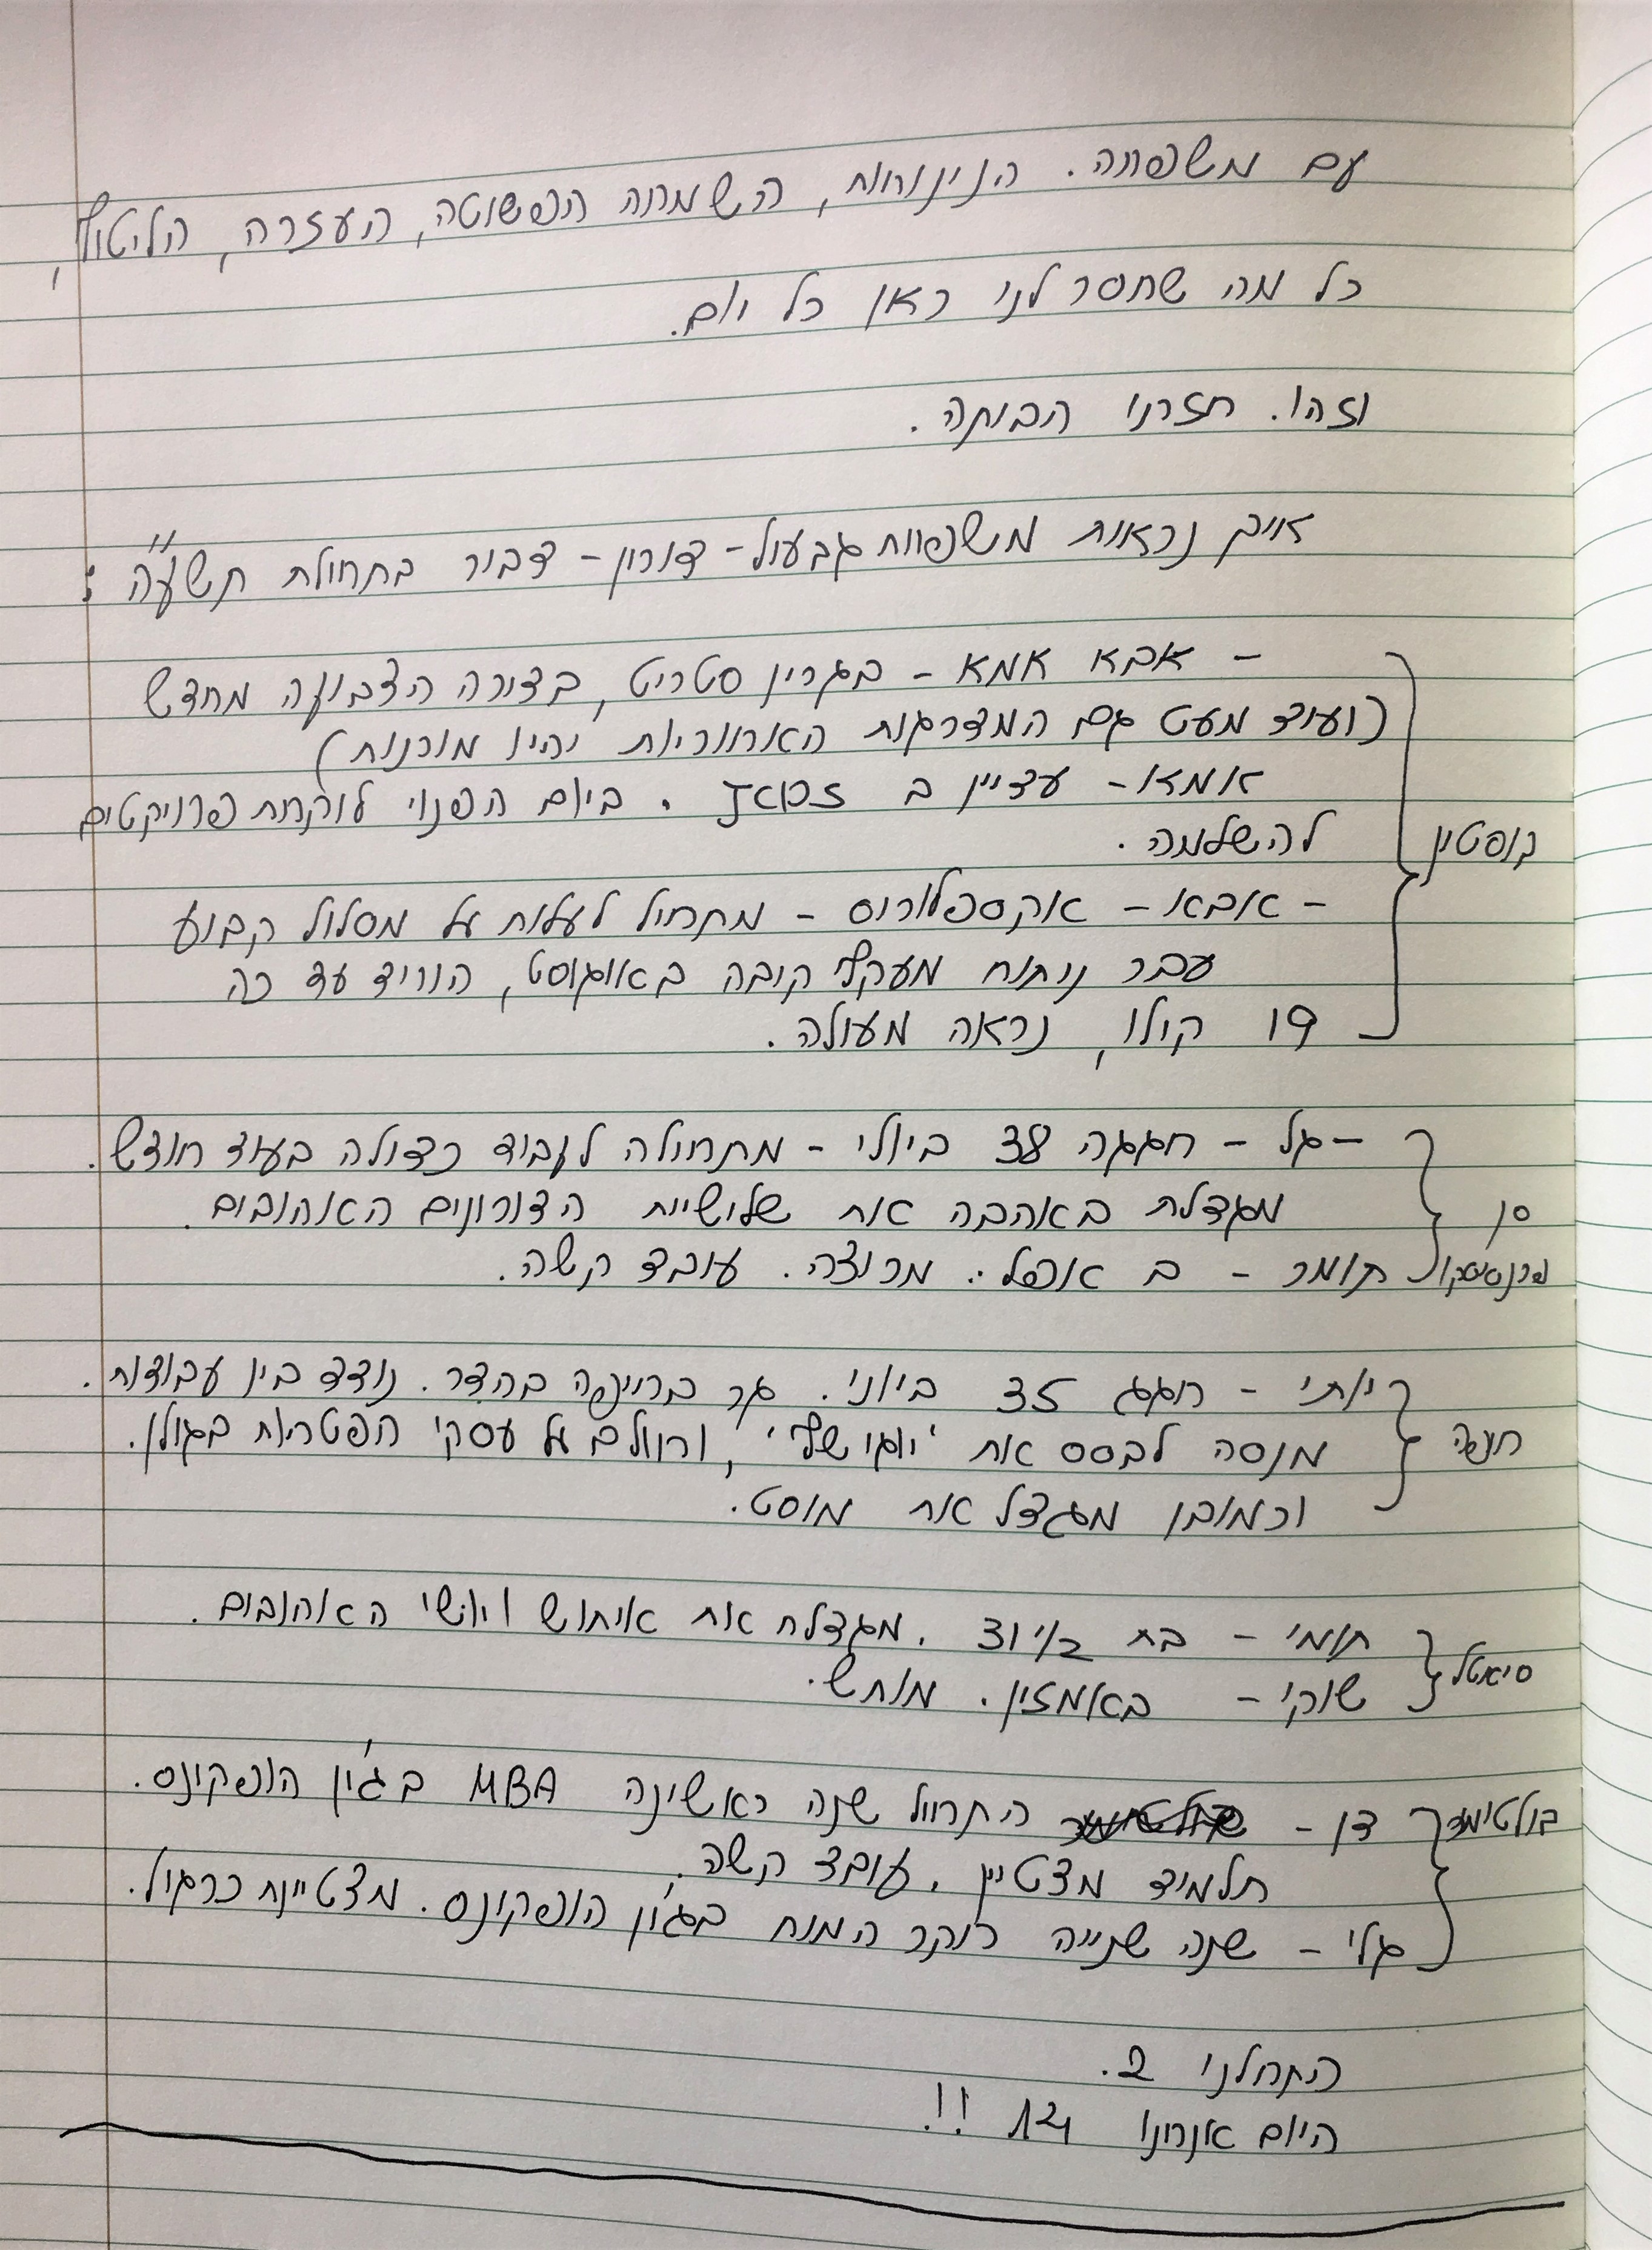 עם משפחה. הנינוחות, השמחה הפשוטה, העזרה, הליטוף,
כל מה שחסר לנו כאן כל יום.
וזהו. חזרנו הביתה.
איך נראית משפחת גבעול - דורון - דבור בתחילת תשע"ה:
- אבא אמא - בגרין סטריט, בדירה הצבועה מחדש
(ועוד מעט גם המדרגות האחוריות יהיו מוכנות)
אמא - עדיין ב JCDS. ביום הפנוי לוקחת פרויקטים
להשלמה.
בוסטון
- אבא - אקספלורס - מתחיל לעלות על מסלול קבוע
עבר ניתוח מעקף קיבה באוגוסט, הוריד עד כה
19 קילו, נראה מעולה.
- גל - חגגה 38 ביולי - מתחילה לעבוד כדולה בעוד חודש.
מגדלת באהבה את שלישיית הדורונים האהובים.
סן
פרנסיסקו תומר - ב אפל. מרוצה. עובד קשה.
יותי - חגג 35 ביוני. גר בחיפה בהדר. נודד בין עבודות.
חיפה מנסה לבסס את 'יוגי שף', וחולם על עסקי הפטריות בגולן.
וכמובן מגדל את מוסט.
תומי - בת 31 1/2. מגדלת את איתוש ויושי האהובים.
סיאטל
שוקי - באמזון. מותש.
בולטימור דן - התחיל שנה ראשונה MBA בג'ון הופקינס.
תלמיד מצטיין. עובד קשה.
גלי - שנה שנייה חוקר המוח בג'ון הופקינס. מצטיינת כרגיל.
התחלנו 2.
היום אנחנו 14!!